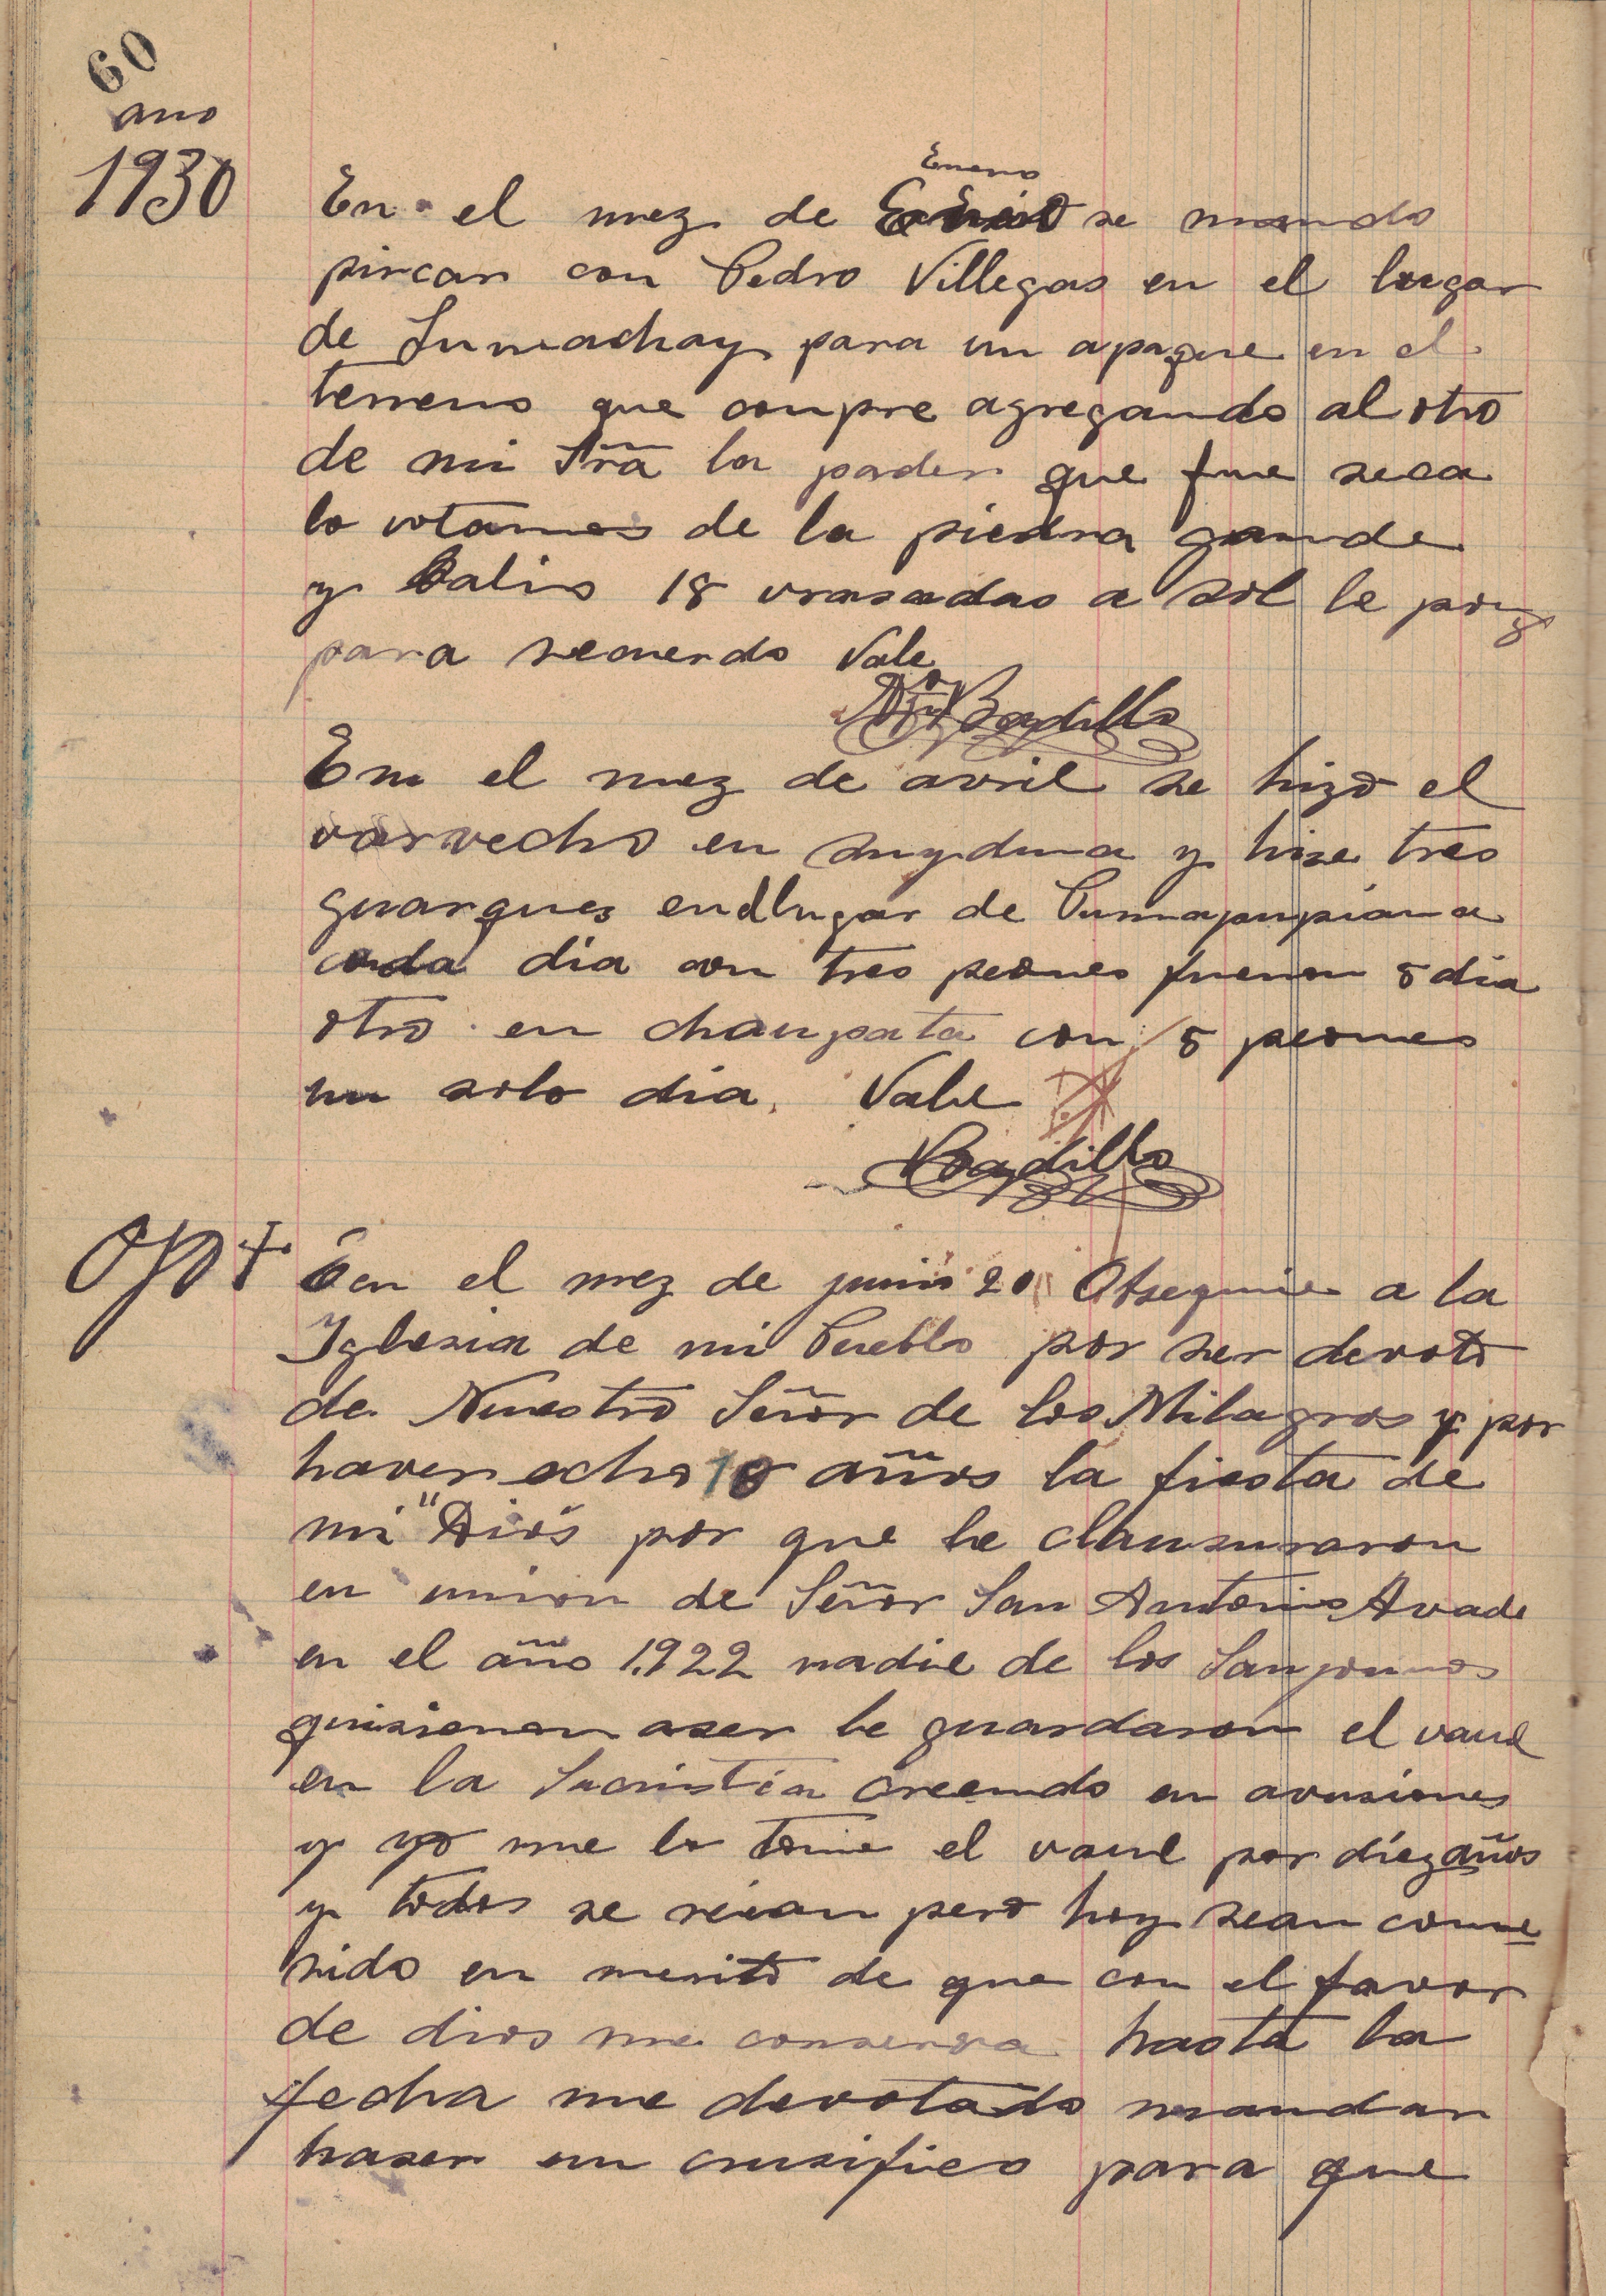 60
año
1930
Enero
En el mez de se mando
pircar con Pedro Villegas en el lugar
de Sumachay para un apaque en el
terreno que conpre agregando al otro
de mi Srã la parder que fue seca
lo votamos de la piedra grande
y Salio 18 vrasadas a sol le pong
para recuerdo Vale
Badillo
En el mez de avril se hizo el
varvecho en suyduna y hise tres
guarques en el lugar de
cada dia con tres peones fueron 5 dia
otro en chaupata con 5 peones
un solo dia. Vale
Badillo
Ojo+
en el mez de junio 20 Obsequie a la
Iglesia de mi Pueblo por ser devoto
de Nuestro Señor de los Milagros y por
haver echo 10 años la fiesta de
mi "Dios por que le clausuraron
en union de Señor San Antonio Avade
en el año 1922 nadie de los
quisieron aser le guardaron el vaul
en la Sacristia creendo en avusiones
y yo me lo tome el vaul por diez años
y todos se reian pero hoy sean conve
nido en merito de que con el favor
de dios me conserva hasta la
fecha me devotado mandar
haser un crusifico para que